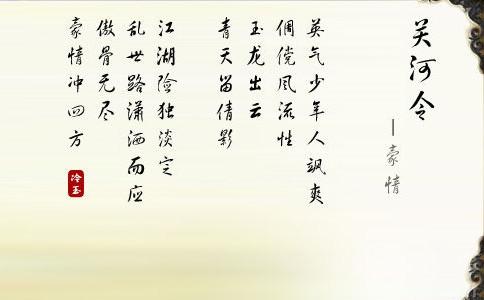 关河令
—豪情
英气少年人飒爽
倜傥风流性
玉龙出云
青天留倩影
江湖险独淡定
乱世路潇洒而应
傲骨无尽
豪情冲四方
冷玉